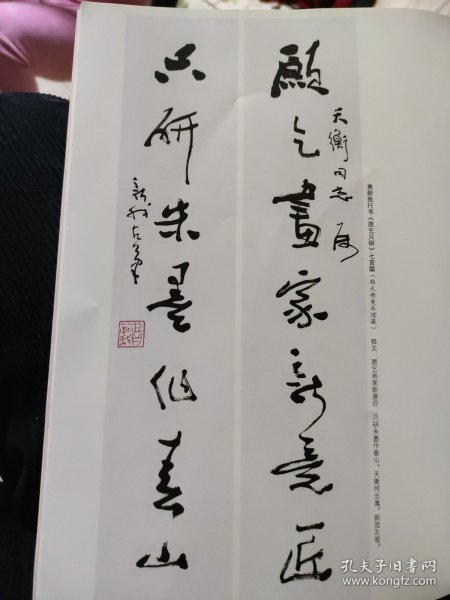 愿乞畫家新意匠
天衡同志属
只研朱墨作春山
新我左笔
费新我行书《愿乞只研》七言联（韩天衡美术馆藏）　释文　愿乞画家新意匠　只研朱墨作春山。天衡同志属，新我左笔。
孔夫子旧书网
www.kongfz.com